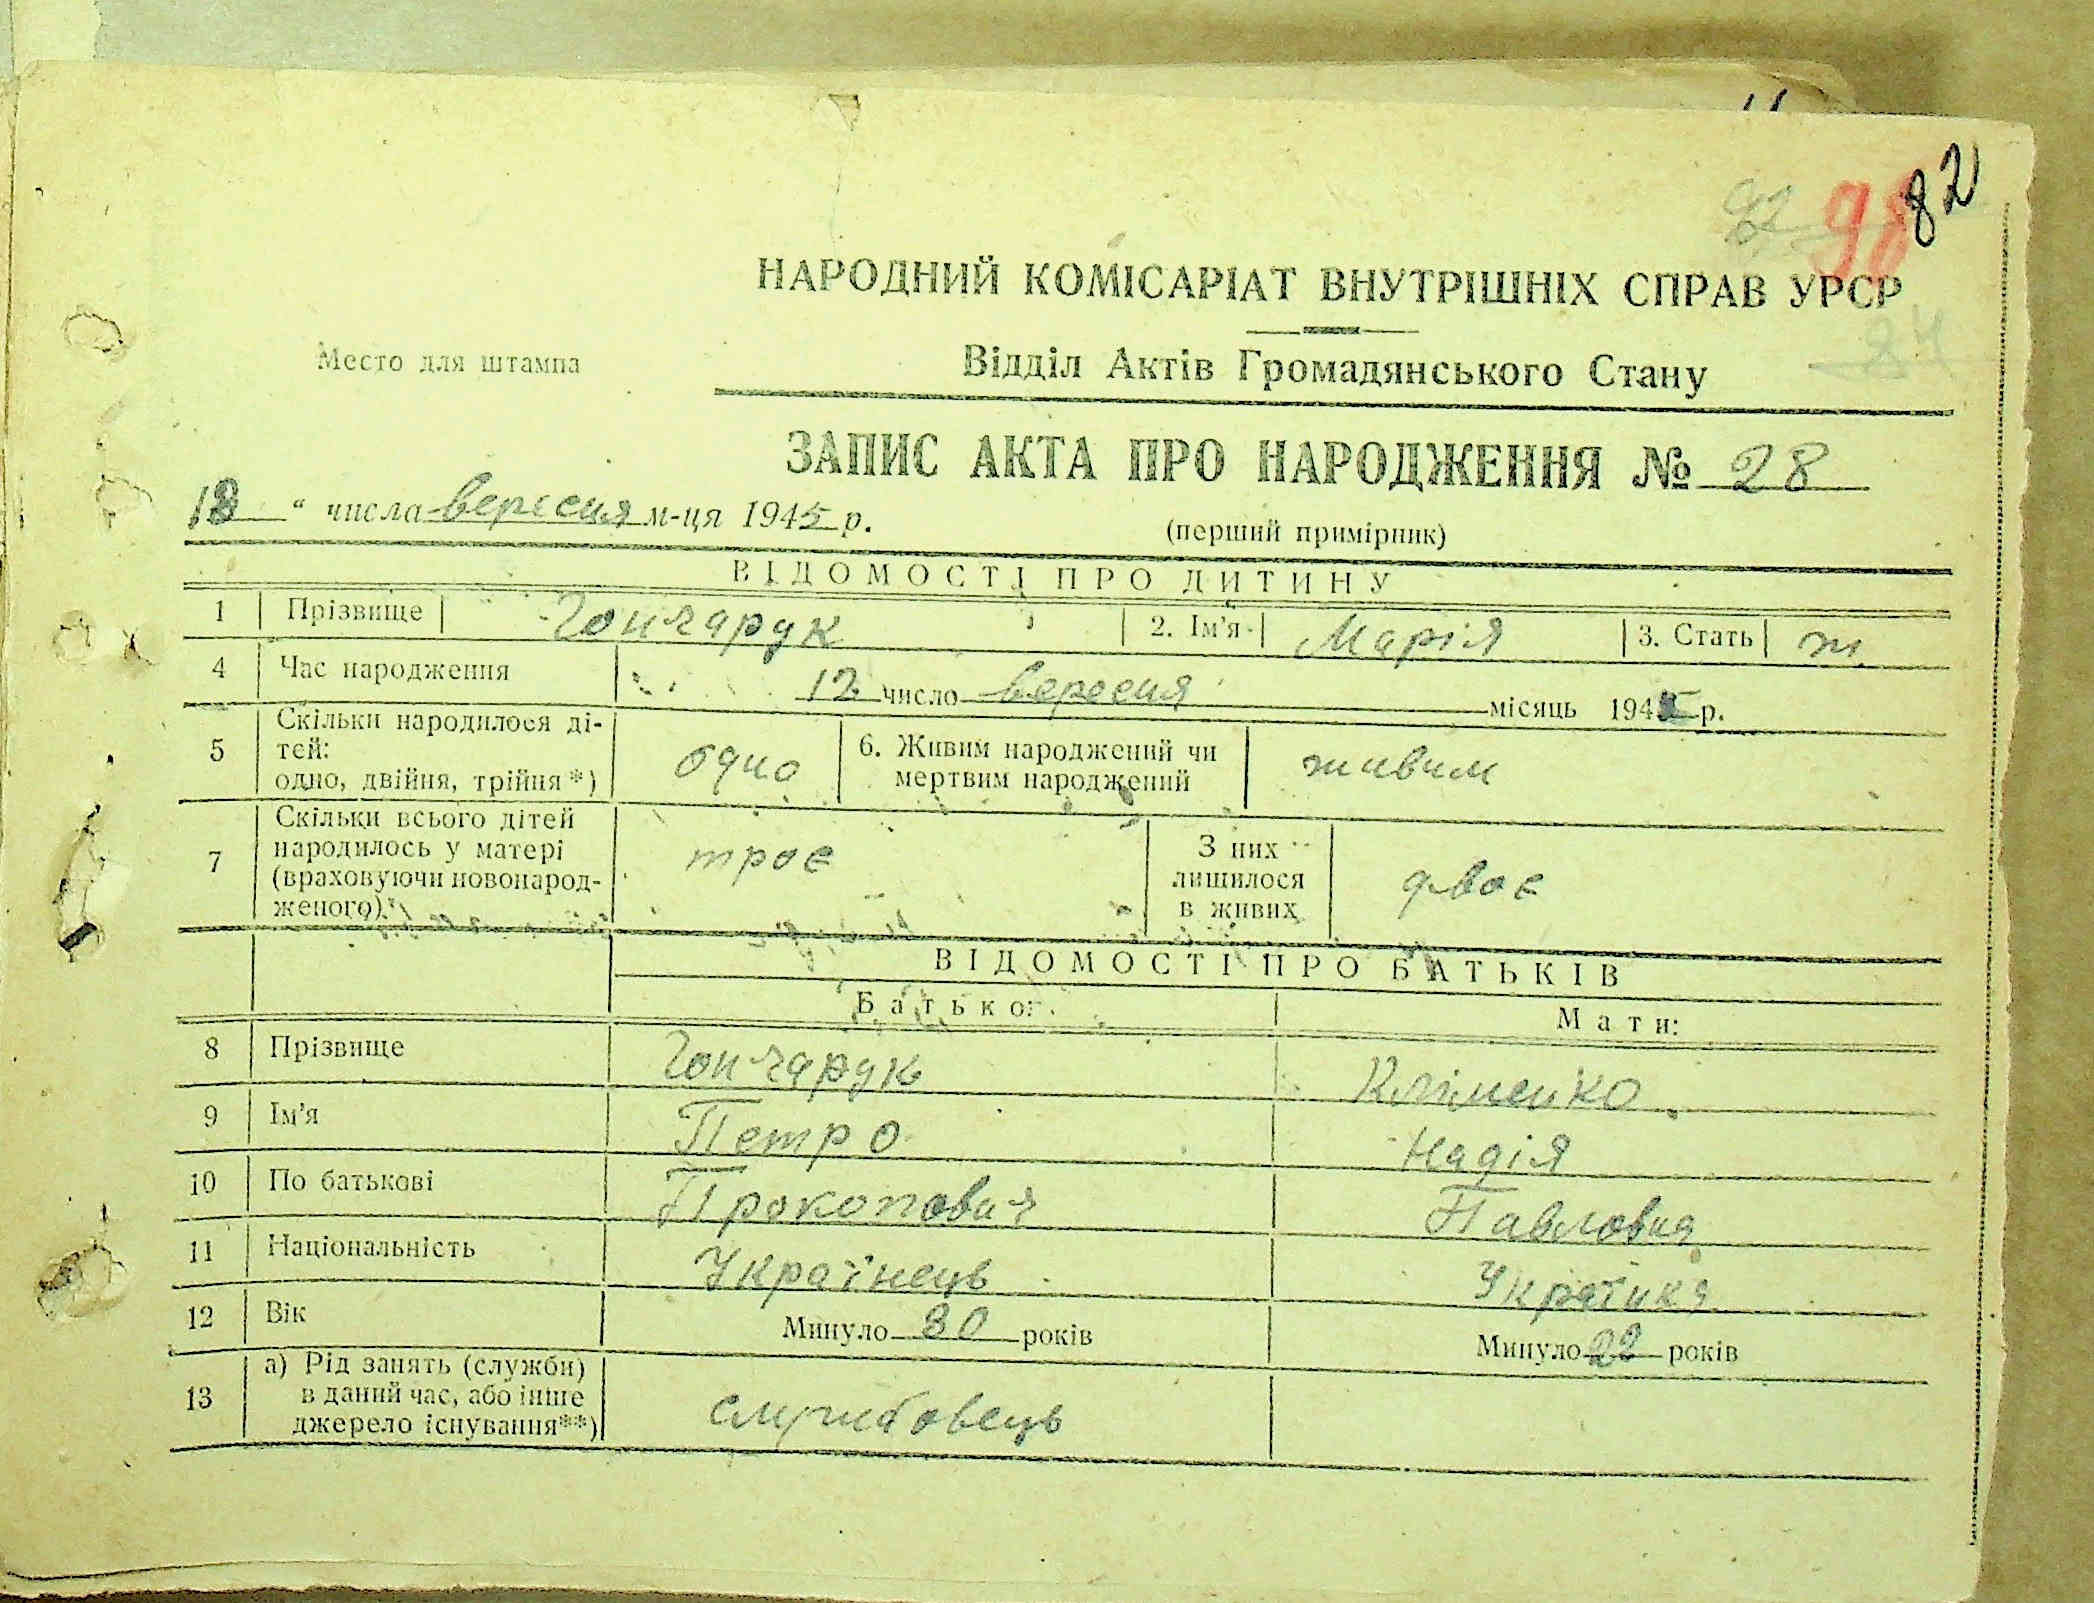 82 98 82
НАРОДНИЙ КОМІСАРІАТ ВНУТРІШНІХ СПРАВ УРСР
24
Место для штампа
Відділ Актів Громадянського Стану
ЗАПИС АКТА ПРО НАРОДЖЕННЯ № 28
18 " числа вересня м-ця 1945 р.
(перший примірник)
ВІДОМОСТІ ПРО ДИТИНУ
1 Прізвище Гончарук 2. Ім'я Марія 3. Стать ж
4 Час народження 12 число вересня місяць 1945 р.
5 Скільки народилося ді-
тей:
одно, двійня, трійня*) одно 6. Живим народжений чи
мертвим народжений живим
7 Скільки всього дітей
народилось у матері
(враховуючи новонарод-
женого) троє З них
лишилося
в живих двоє
ВІДОМОСТІ ПРО БАТЬКІВ
Батько: Мати:
8 Прізвище Гончарук Кліменко
9 Ім'я Петро Надія
10 По батькові Прокопович Павловна
11 Національність Українець Українка
12 Вік Минуло 30 років Минуло років
13 а) Рід занять (служби)
в даний час, або інше
джерело існування**) службовець